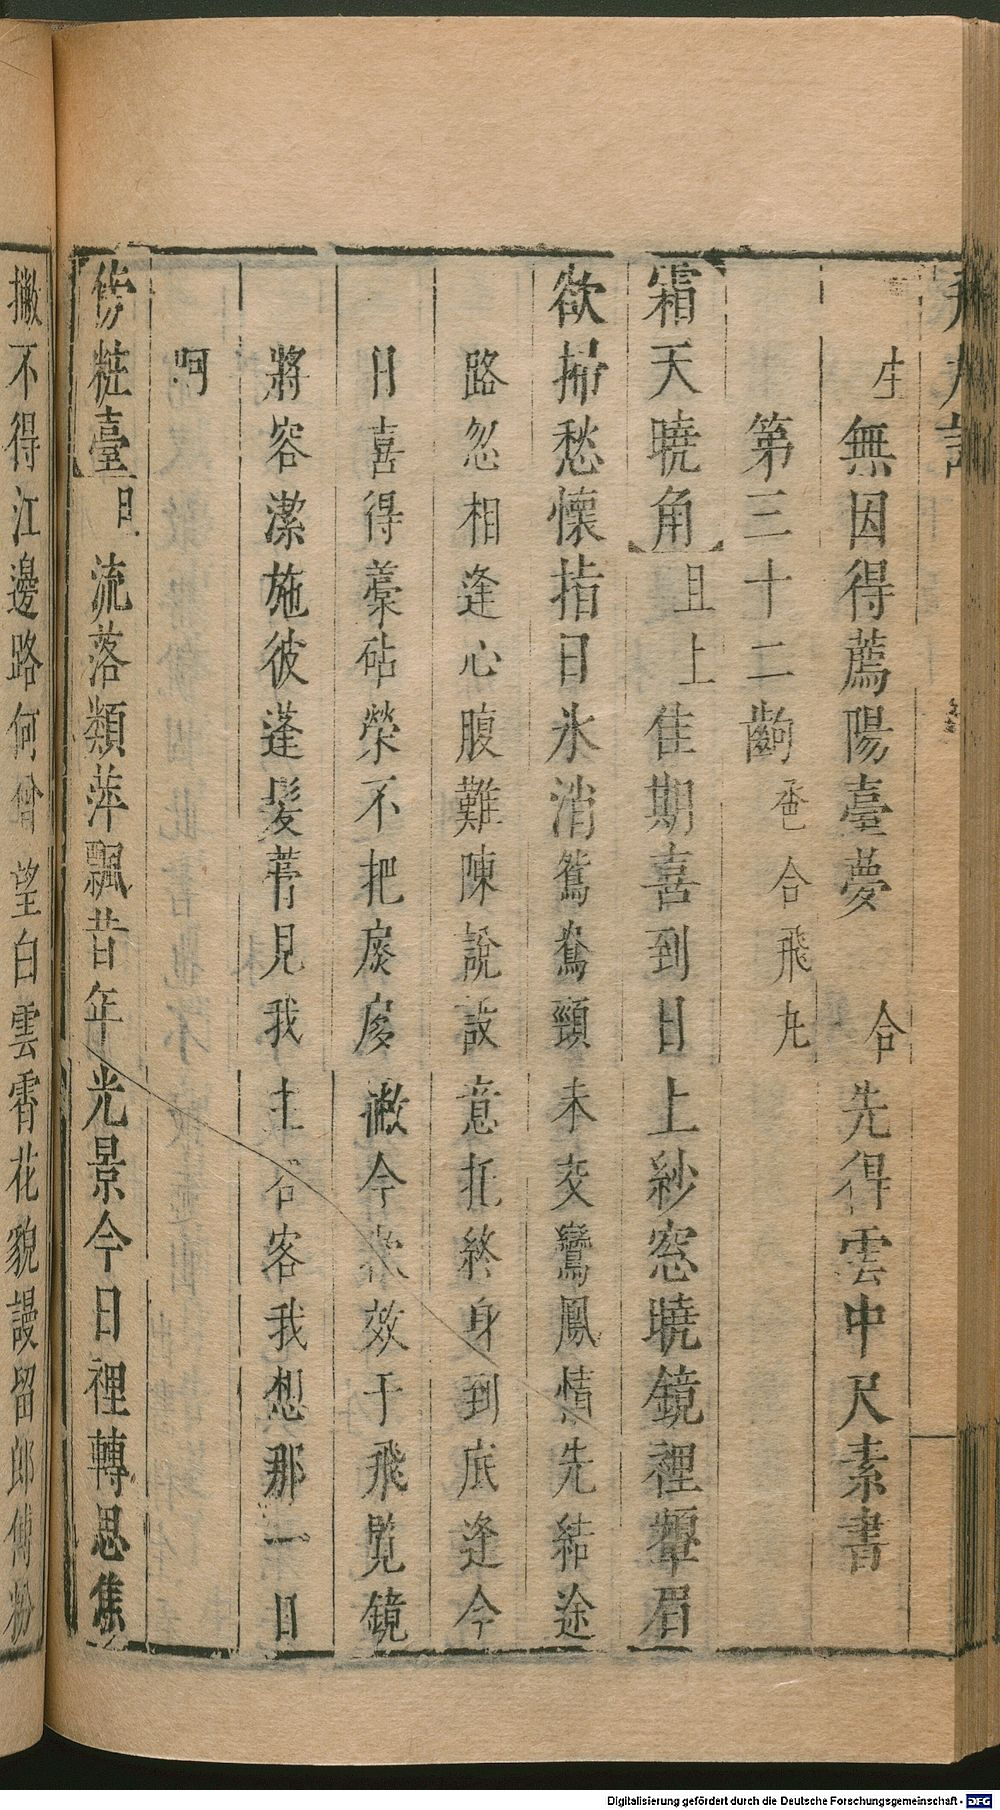 生 無因得薦陽臺夢 合 先得雲中尺素書
第三十二齣 畨合飛丸
霜天曉角 旦上 佳期喜到日上紗窓曉鏡裡顰眉
欲掃愁懷指日氷消鴛鴦頸未交鸞鳳情先結途
路忽相逢心腹難陳說設意托終身到底逢今
日喜得藁砧榮不把扊扅撇今 效于飛覧鏡
將容潔施彼蓬髪菁見我主 客我想那一日
呵
傍粧臺 旦 流落類萍飄昔年光景今日裡轉思焦
撇不得江邊路何曾望白雲霄花貌謾留郎傅粉
Digitalisierung gefördert durch die Deutsche Forschungsgemeinschaft - DFG